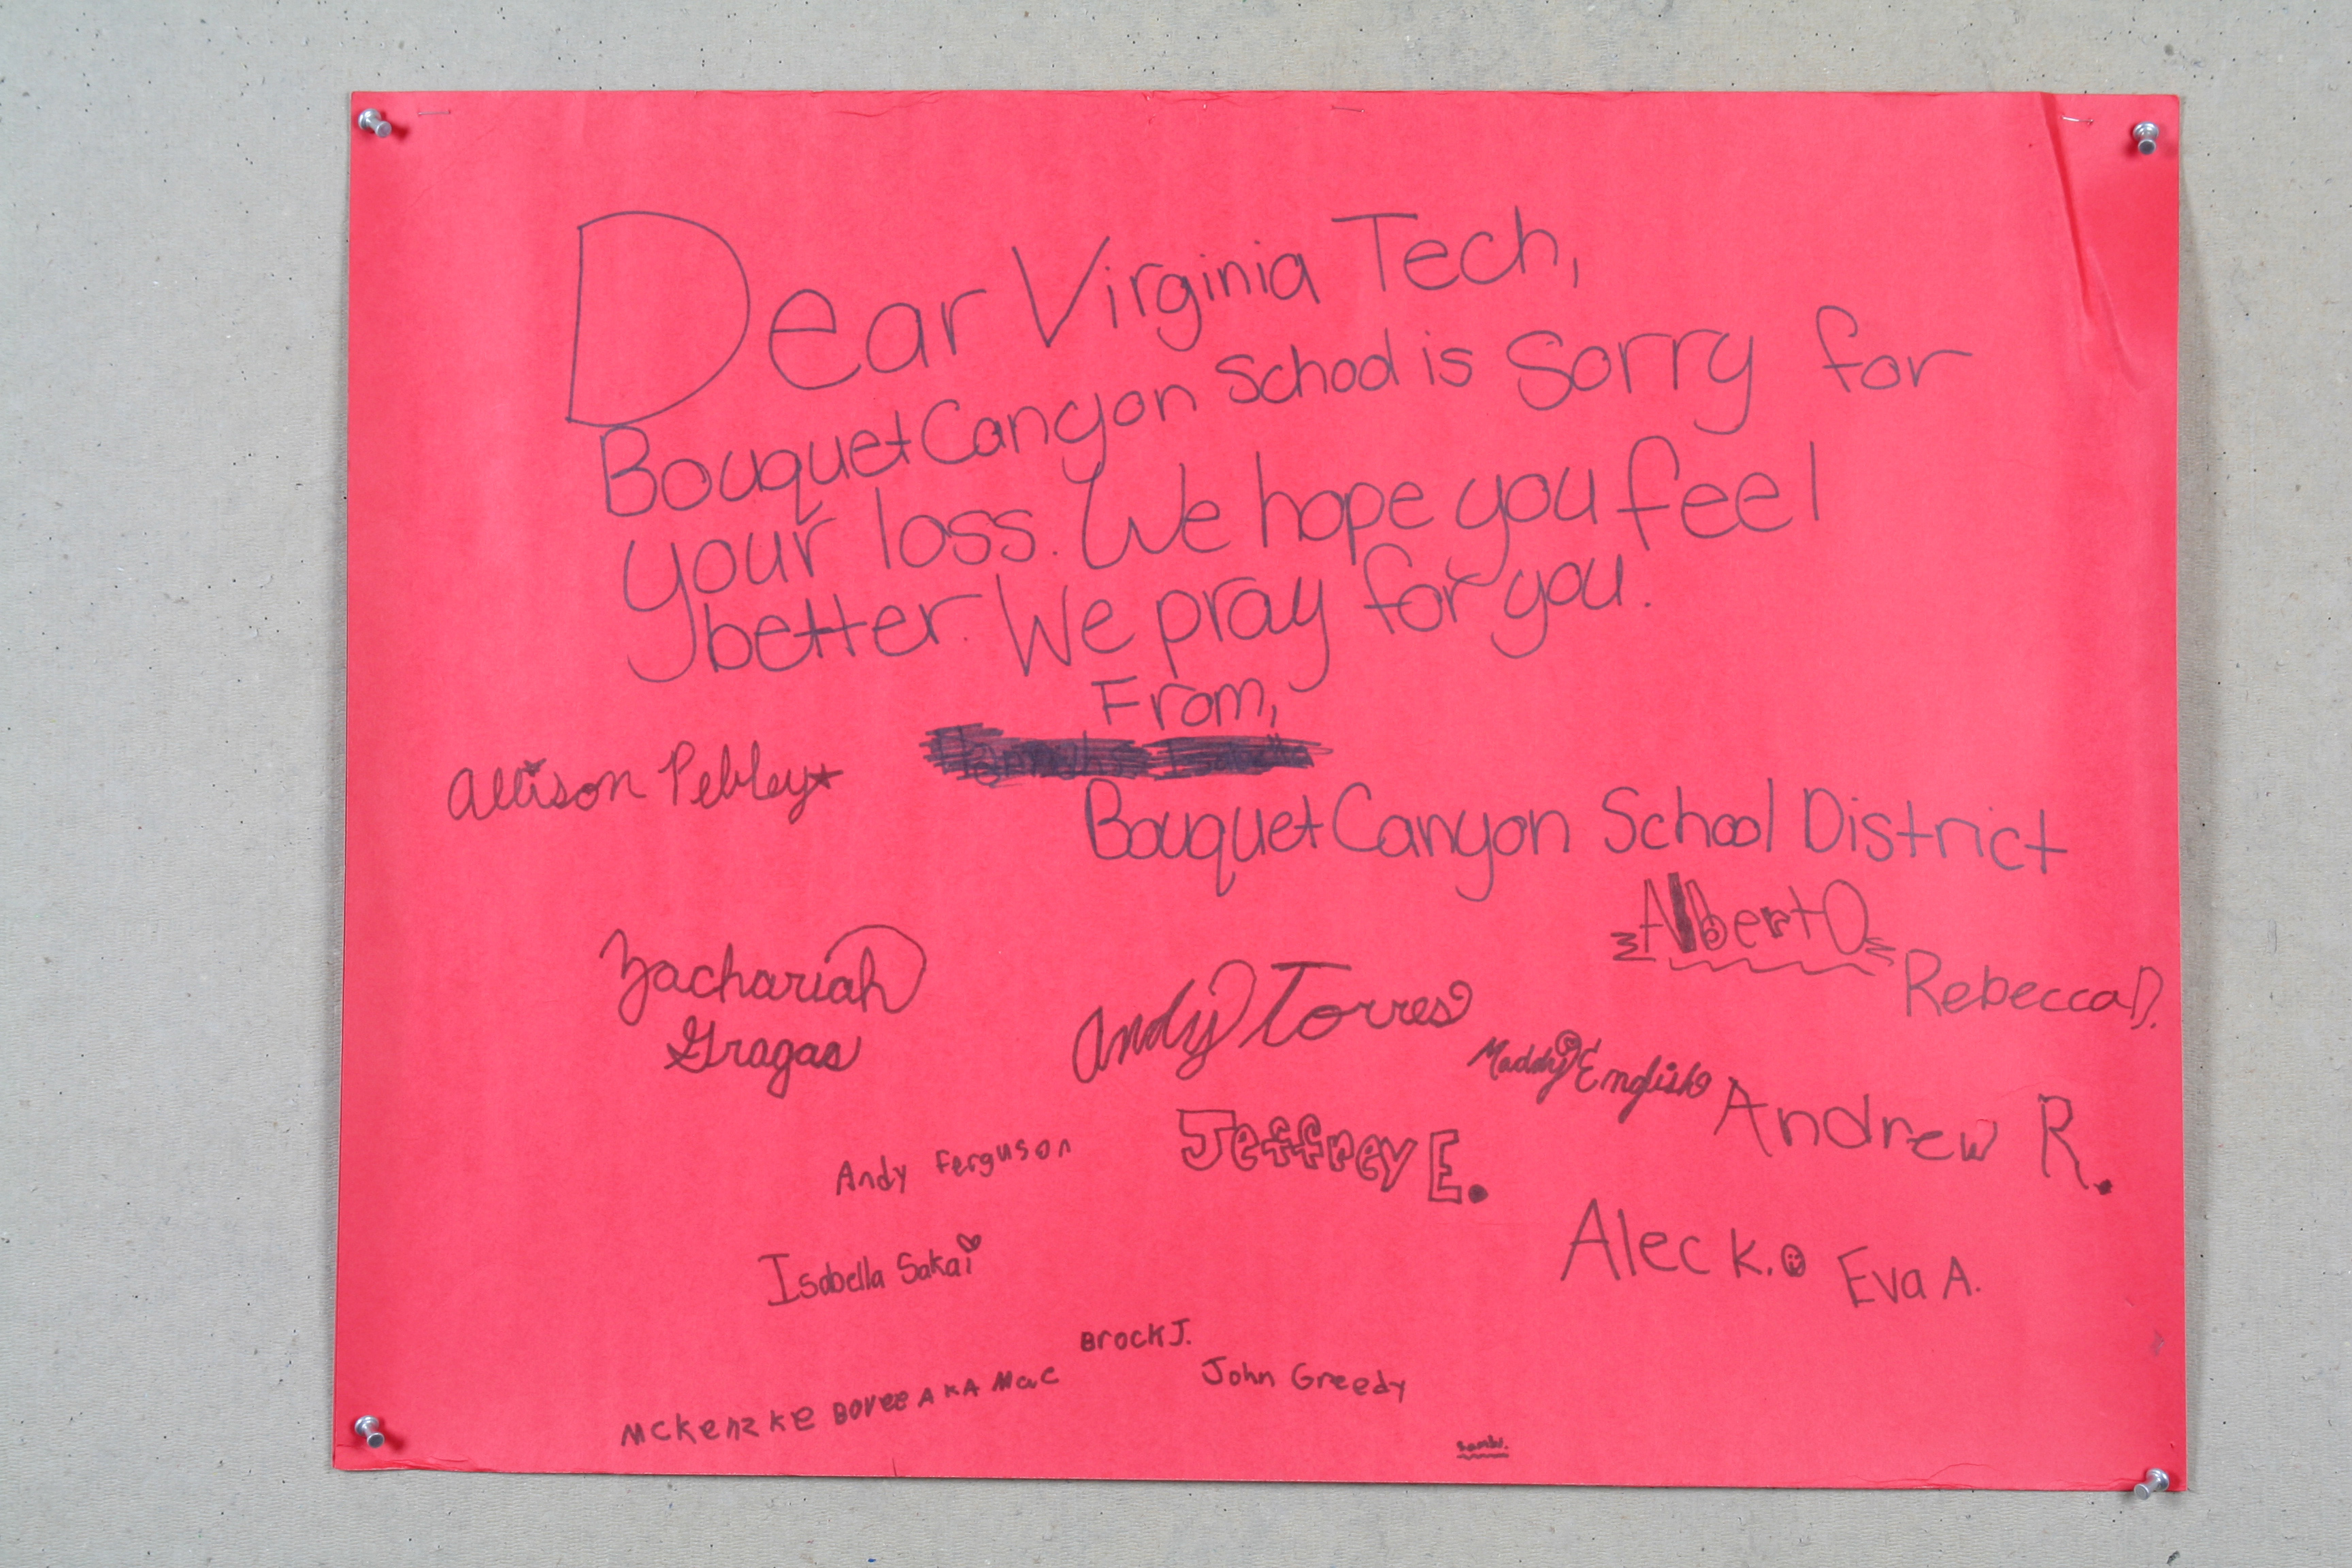 Dear Virginia Tech,
Bouquet Canyon School is Sorry for
your loss. We hope you feel
better. We pray for you.
From,
Allison Pebley
Bouquet Canyon School District
Albert O
Rebecca D.
Zachariah
Gragas
Andy Torres
Maddy English
Andrew R.
Andy Ferguson
Jeffrey E.
Alec K.
Eva A.
Isabella Sakai
Brock J.
John Greedy
McKenzKe Bovee AKA Mac